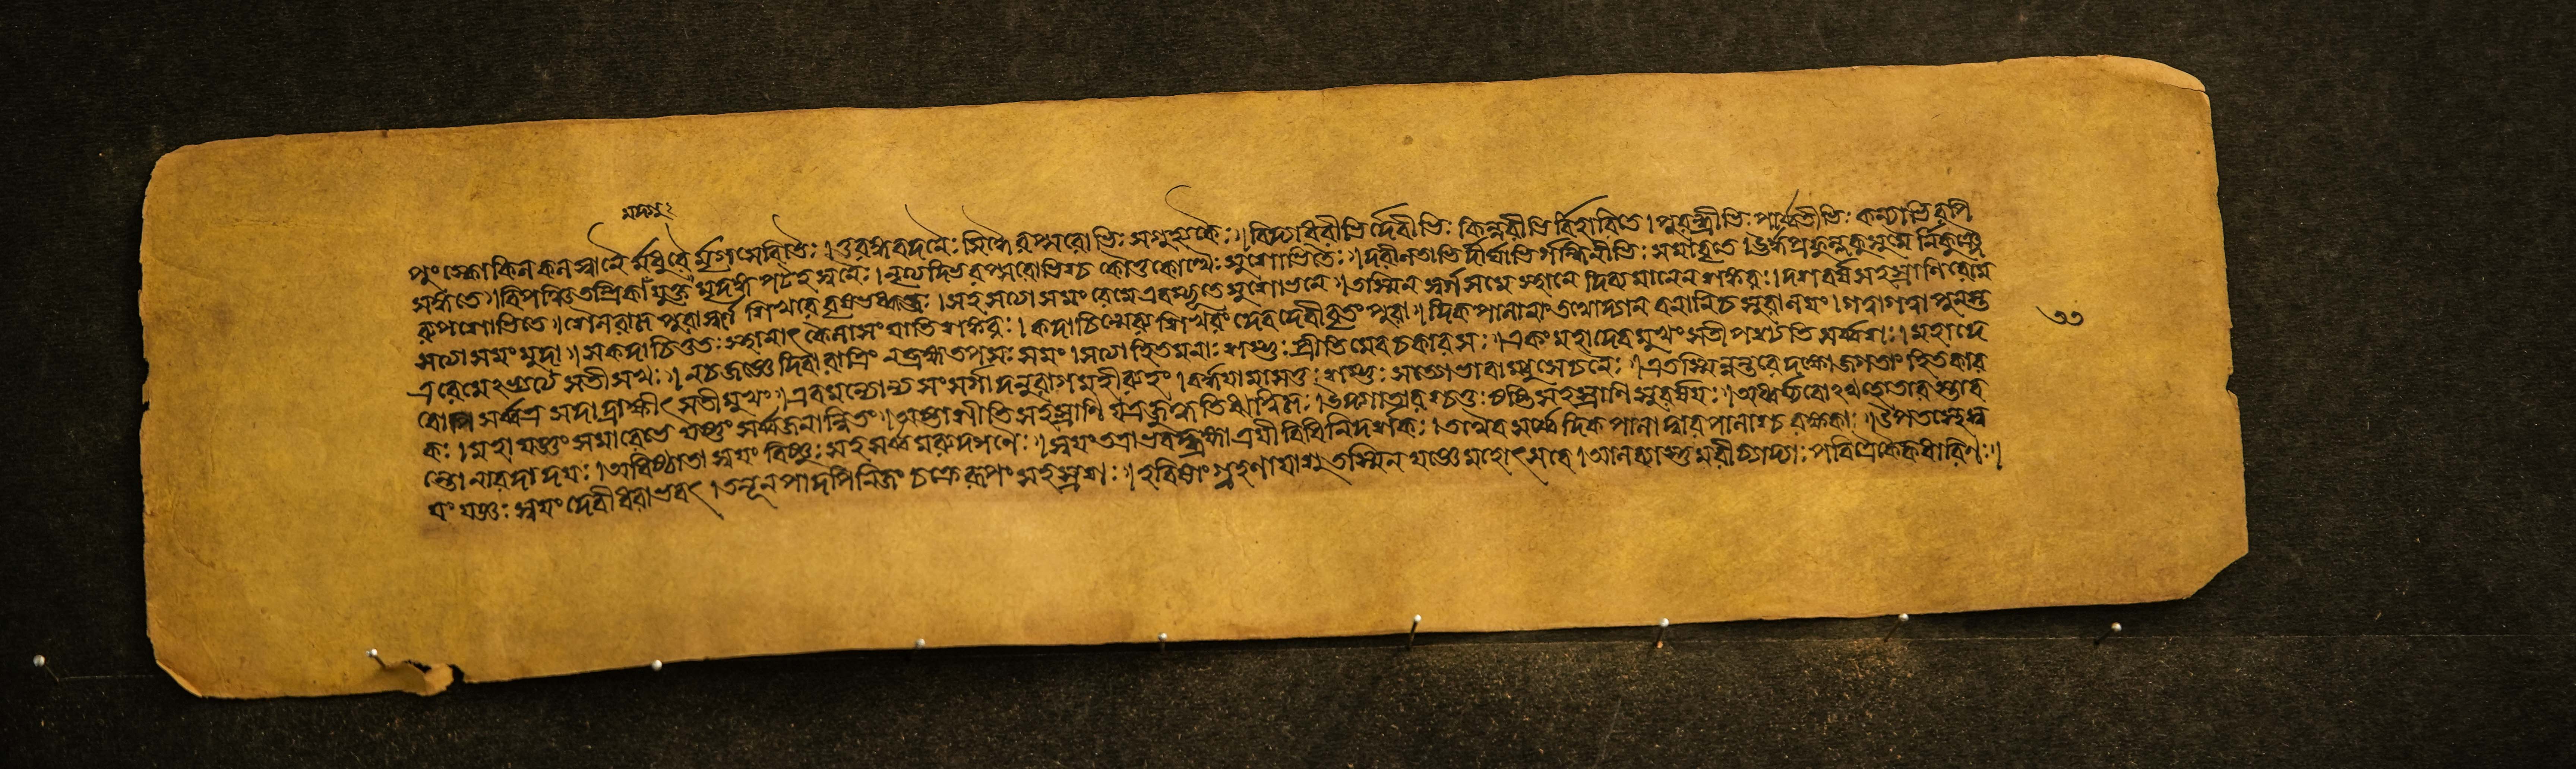 মদগুঃ
পুংস্কোকিলকলস্বানৈ র্মধুরৈ র্মৃগসেবিতৈঃ। তুরঙ্গবদনৈঃ সিদ্ধৈ রপ্সরোভিঃ সগুহ্যকৈঃ॥ বিদ্যাধরীভি র্দেবীভিঃ কিন্নরীভি র্বিহারিতে। পুরন্ধ্রীভিঃ পার্ব্বতীভিঃ কন্যাভি রূপ
সঙ্গতে॥ বিপঞ্চিতন্ত্রিকা মৃদঙ্গ পটহস্বনৈঃ। নৃত্যদ্ভিরপ্সরোভিশ্চ কৌতুকোত্থৈঃ সুশোভিতৈঃ॥ দেবীলতাভি র্দীর্ঘাভি র্গন্ধিনীভিঃ সমাবৃতে। ঊর্দ্ধপ্রফুল্লকুসুমৈ র্নিকুঞ্জৈ
রূপশোভিতে॥ শৈলরাজ পুরাভ্যর্ণে শিখরে বৃষভধ্বজঃ। সহ সত্যা সমং রেমে এবম্ভূতে সুশোভনে॥ তস্মিন স্বর্গসমে স্থানে দিব্যমানেন শঙ্করঃ। দশবর্ষসহস্রাণি রেমে
সত্যা সমং মুদা॥ স কদাচিত্ততঃ স্থানাৎ কৈলাসং যাতি শঙ্করঃ। কদাচিন্মেরু শিখরং দেবদেবীবৃতং পুরা॥ দিকপালানাং তথোদ্যান বনানি চ সুরালয়ং। গত্বা গত্বা পুনস্ত
ত্র রেমে সতীসখঃ॥ ন চ জজ্ঞে দিবা রাত্রিং ন ব্রহ্ম তপসঃ সমং। সত্যাহিতমনাঃ শম্ভুঃ প্রীতিমেব চকার সঃ॥ একং মহাদেব মুখং সতী পশ্যতি সর্ব্বশঃ। মহাদে
বোপি সর্ব্বত্র সদাদ্রাক্ষীৎ সতীমুখং॥ এবমন্যোন্য সংসর্গা দনুরাগমহীরুহং। বর্দ্ধয়ামাসতুঃ শম্ভুঃ সত্যৌ ভাবাম্বুসেচনৈঃ॥ এতস্মিন্নন্তরে দক্ষো জগতাং হিতকার
কঃ। মহাযজ্ঞং সমারেভে যষ্টুং সর্ব্বজনান্বিতং॥ অষ্টাশীতি সহস্রাণি যত্র জুহ্বতি ঋত্বিজঃ। উদ্গাতারশ্চ চতুঃষষ্টি সহস্রাণি সুরর্ষয়ঃ॥ অধ্বর্য্যবোঽথ হোতার স্তাব
ন্তো নারদাদয়ঃ। অধিষ্ঠাতা স্বয়ং বিষ্ণুঃ সহ সর্ব্ব মরুদ্গণৈঃ॥ স্বয়ং তত্রাভবদ্ব্রহ্মা ত্রয়ীবিধিনিদর্শকঃ। তথৈব সর্ব্বে দিকপালা দ্বারপালাশ্চ রক্ষকাঃ॥ উপতস্থে স্ব
য়ং যজ্ঞঃ স্বয়ং দেবী ধরাভবৎ। তনূনপাদপি নিজং চক্রে রূপং সহস্রশঃ॥ হবিষাং গ্রহণায়াশু তস্মিন যজ্ঞে মহোৎসবে। আনন্ত্যাস্তু মরীচ্যাদ্যাঃ পবিত্রৈকৈকধারিণঃ॥
৩৩